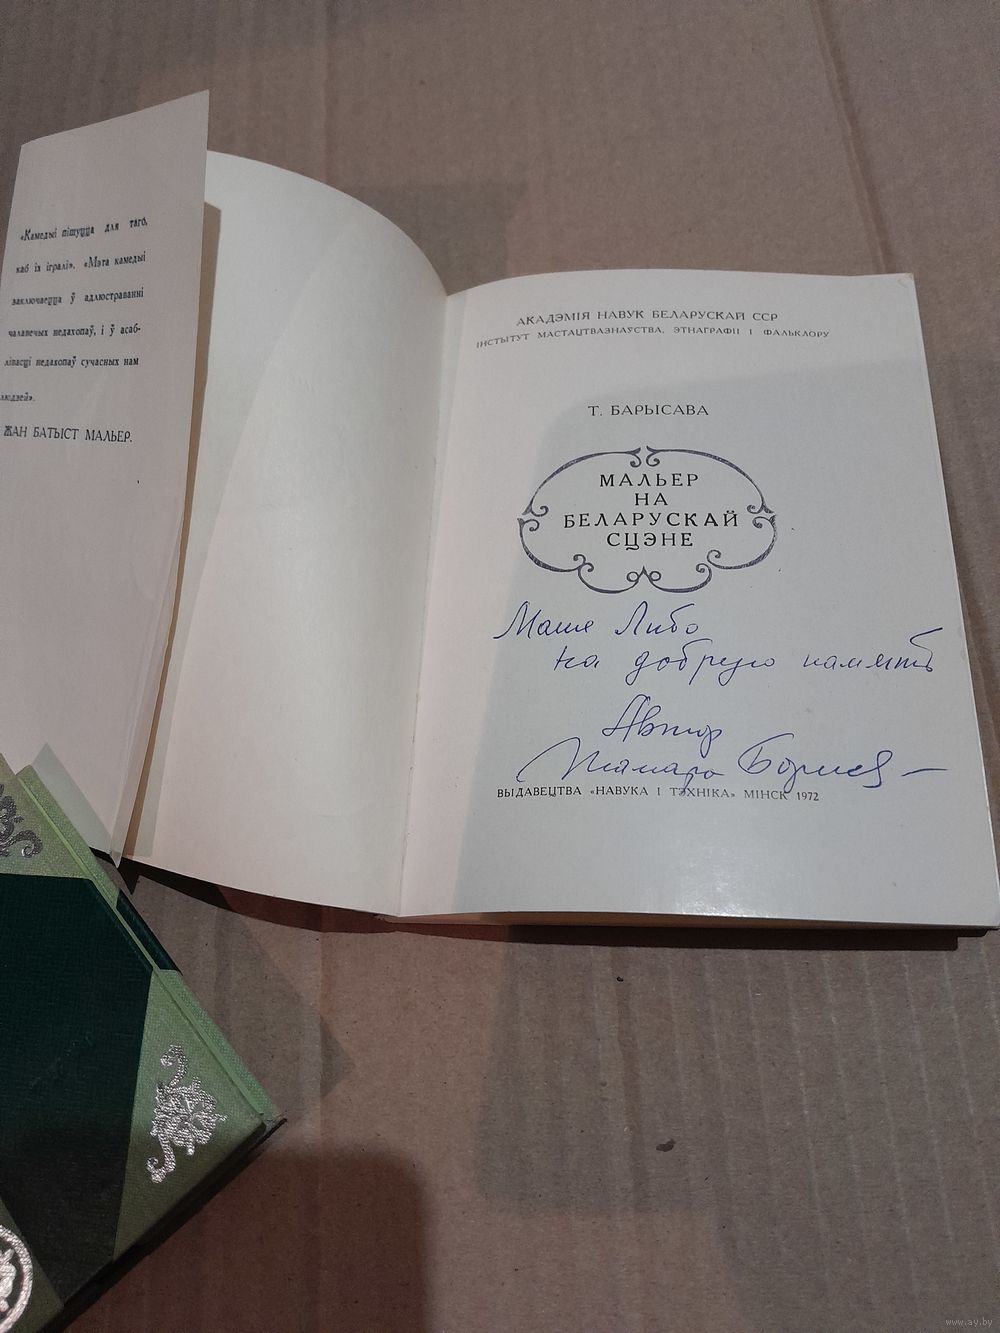 «Камедыі пішуцца для таго,
каб іх ігралі». «Мэта камедыі
заключаецца ў адлюстраванні
чалавечых недахопаў, і ў асаб-
лівасці недахопаў сучасных нам
людзей».
ЖАН БАТЫСТ МАЛЬЕР.
АКАДЭМІЯ НАВУК БЕЛАРУСКАЙ ССР
ІНСТЫТУТ МАСТАЦТВАЗНАУСТВА, ЭТНАГРАФІІ І ФАЛЬКЛОРУ
Т. БАРЫСАВА
МАЛЬЕР
НА
БЕЛАРУСКАЙ
СЦЭНЕ
Маше Либо
на добрую память
Автор
Тамара Борисов
ВЫДАВЕЦТВА «НАВУКА І ТЭХНІКА» МІНСК 1972
www.ay.by